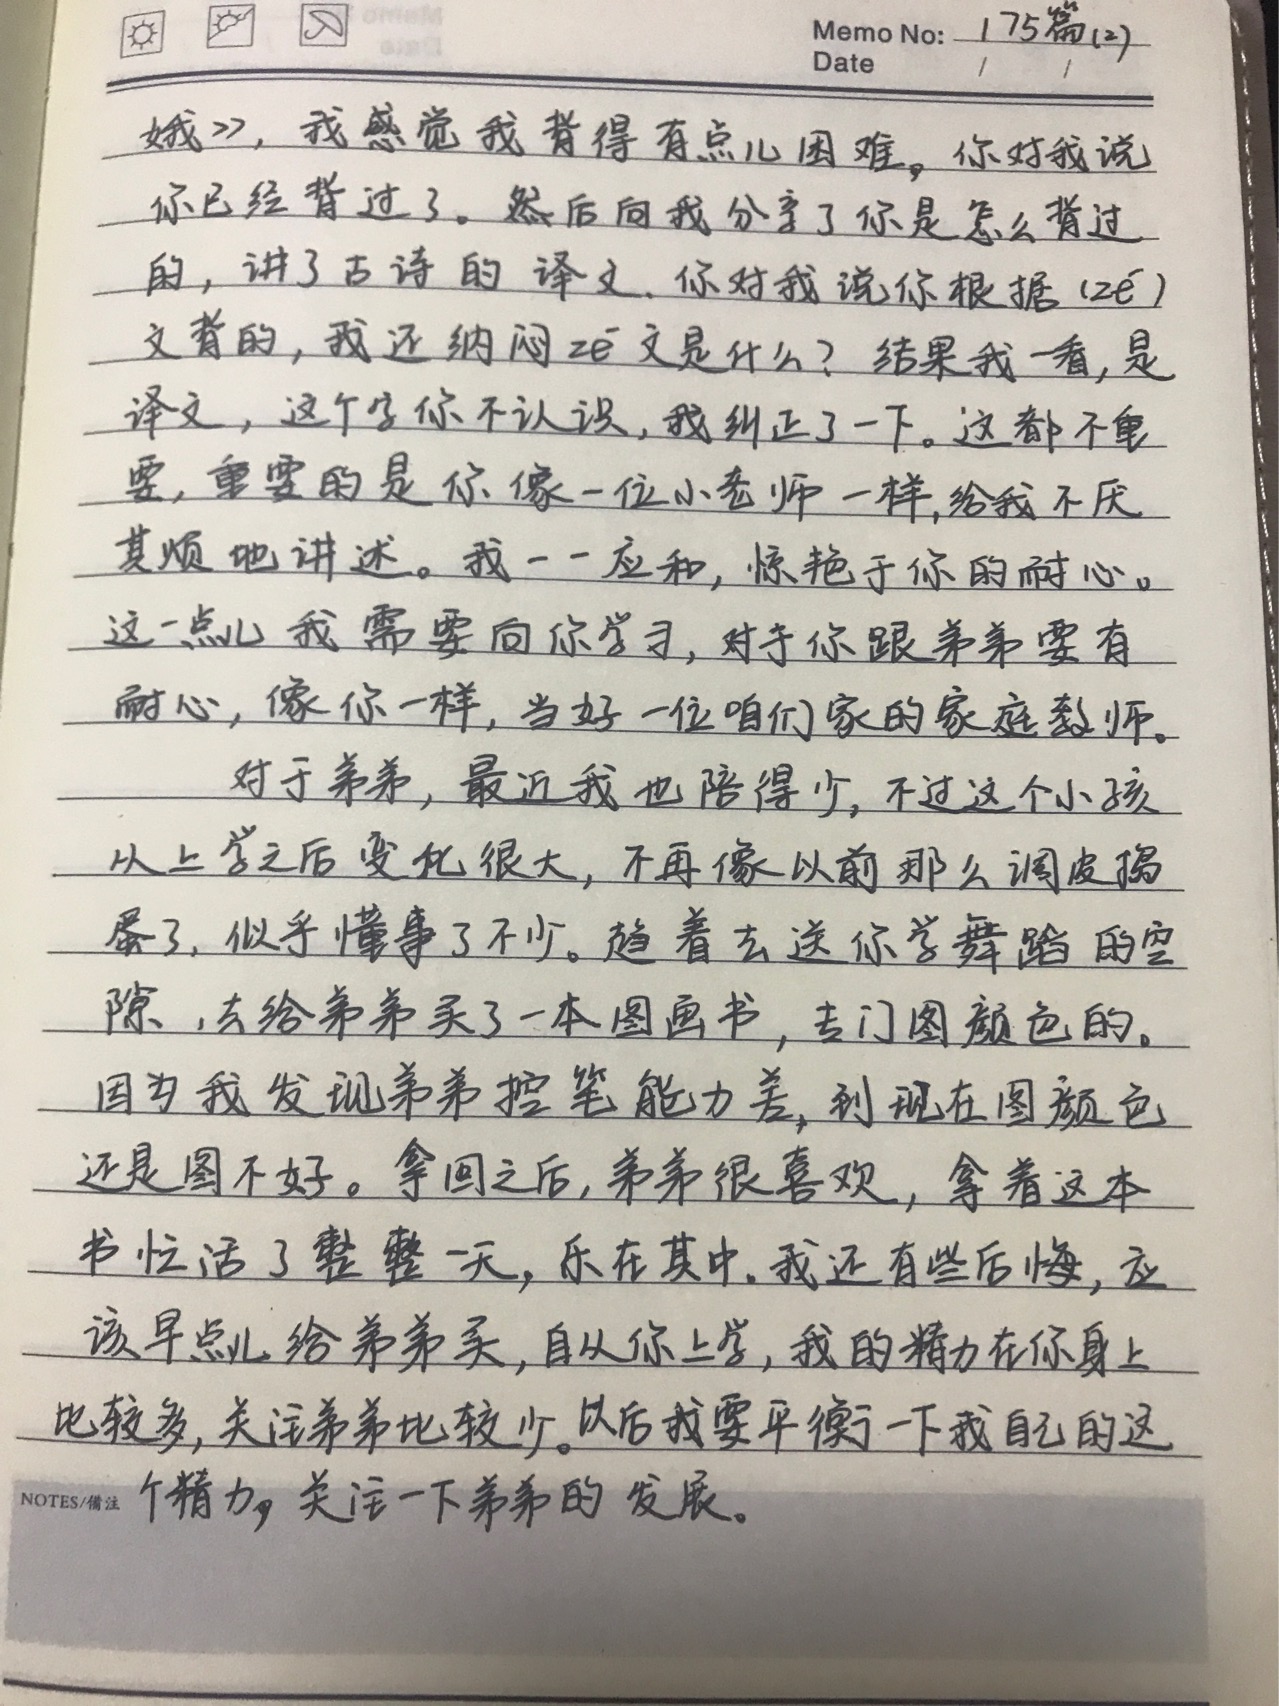 Memo No: 175篇(2)
Date / /
娥》，我感觉我背得有点儿困难，你对我说
你已经背过了。然后向我分享了你是怎么背过
的，讲了古诗的译文、你对我说你根据（zé）
文背的，我还纳闷zé文是什么？结果我一看，是
译文，这个字你不认识，我纠正了一下。这都不重
要，重要的是你像一位小老师一样，给我不厌
其烦地讲述。我一一应和，惊艳于你的耐心。
这一点儿我需要向你学习，对于你跟弟弟要有
耐心，像你一样，当好一位咱们家的家庭教师。
对于弟弟，最近我也陪得少，不过这个小孩
从上学之后变化很大，不再像以前那么调皮捣
蛋了，似乎懂事了不少。趁着去送你学舞蹈的空
隙，去给弟弟买了一本图画书，专门图颜色的。
因为我发现弟弟控笔能力差，到现在图颜色
还是图不好。拿回之后，弟弟很喜欢，拿着这本
书忙活了整整一天，乐在其中。我还有些后悔，应
该早点儿给弟弟买，自从你上学，我的精力在你身上
比较多，关注弟弟比较少。以后我要平衡一下我自己的这
NOTES/備注 个精力，关注一下弟弟的发展。